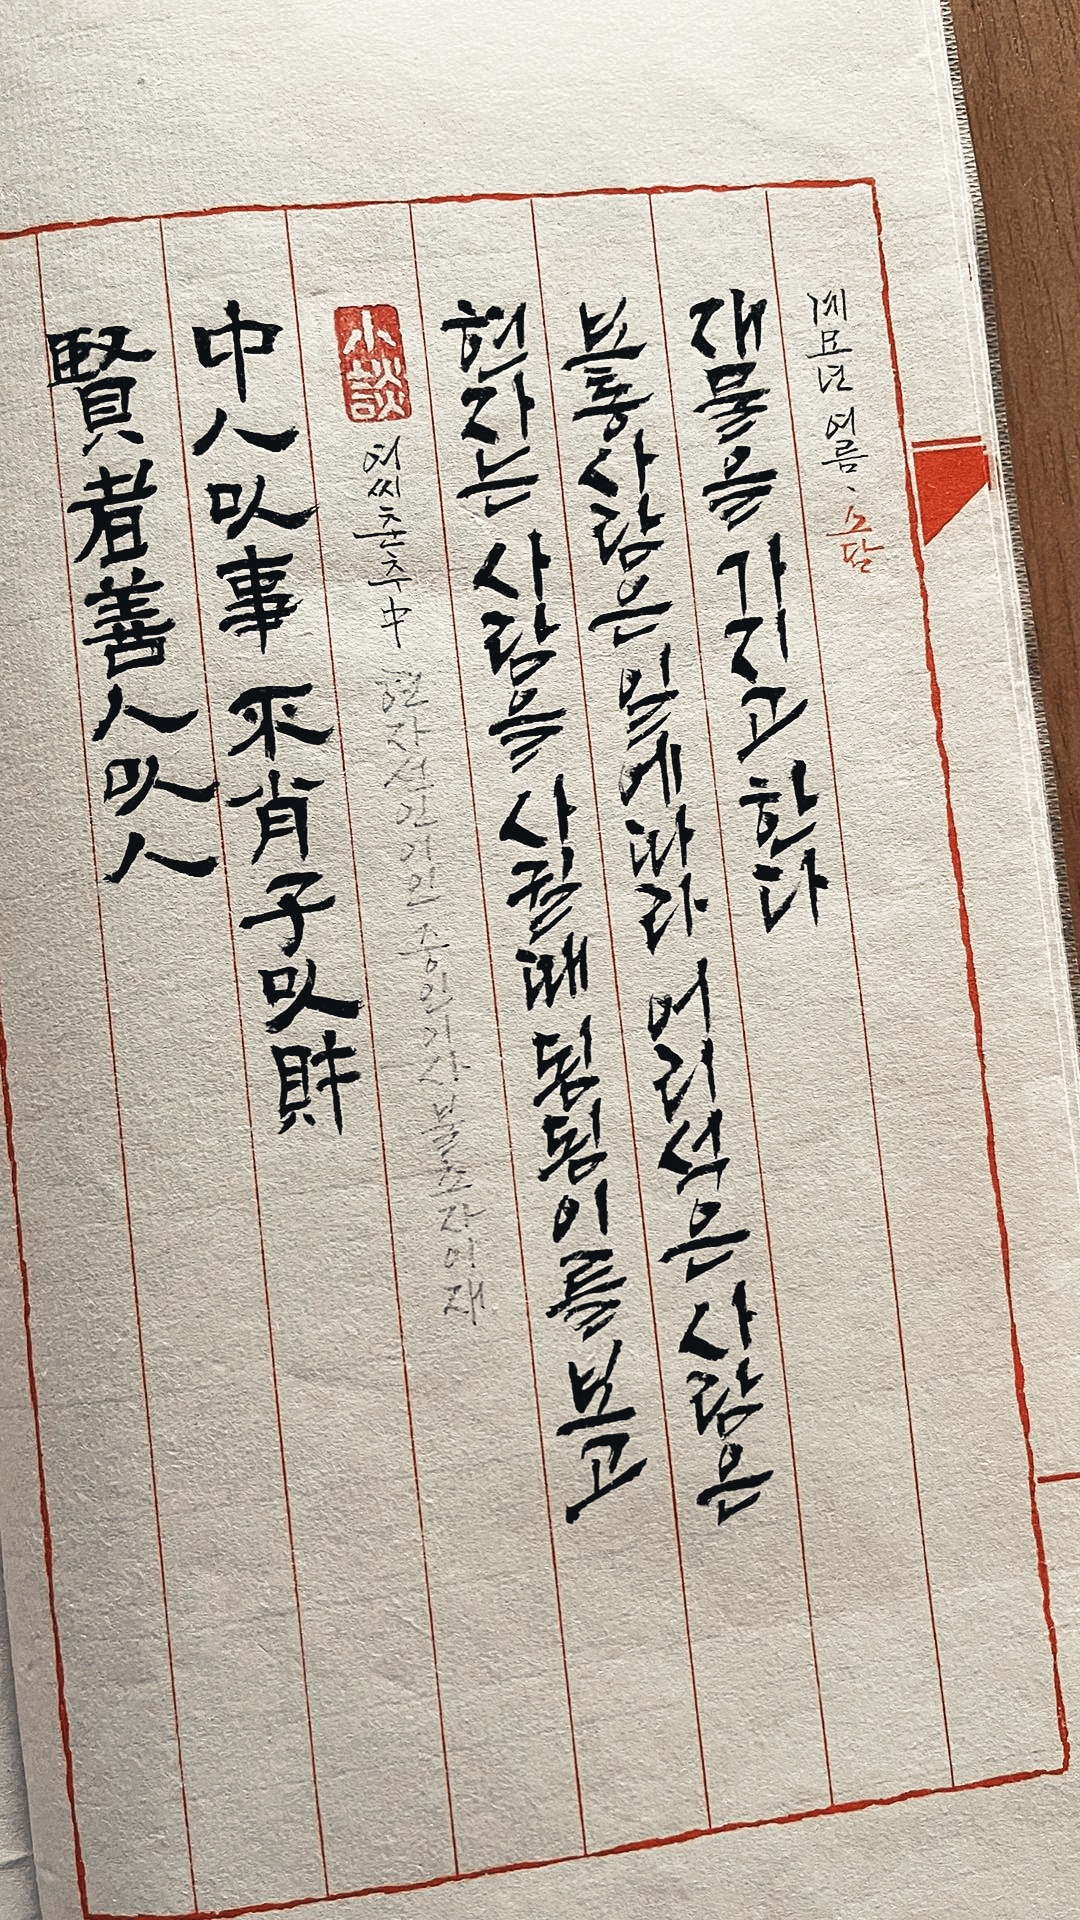 賢者善人以人
中人以事 不肖子以財
小談
여씨춘추中 현자선인이인 중인이사 불초자이재
현자는 사람을 사귈때 됨됨이를 보고
보통사람은 일에따라 어리석은 사람은
재물을 가지고 한다
계묘년 여름、소담